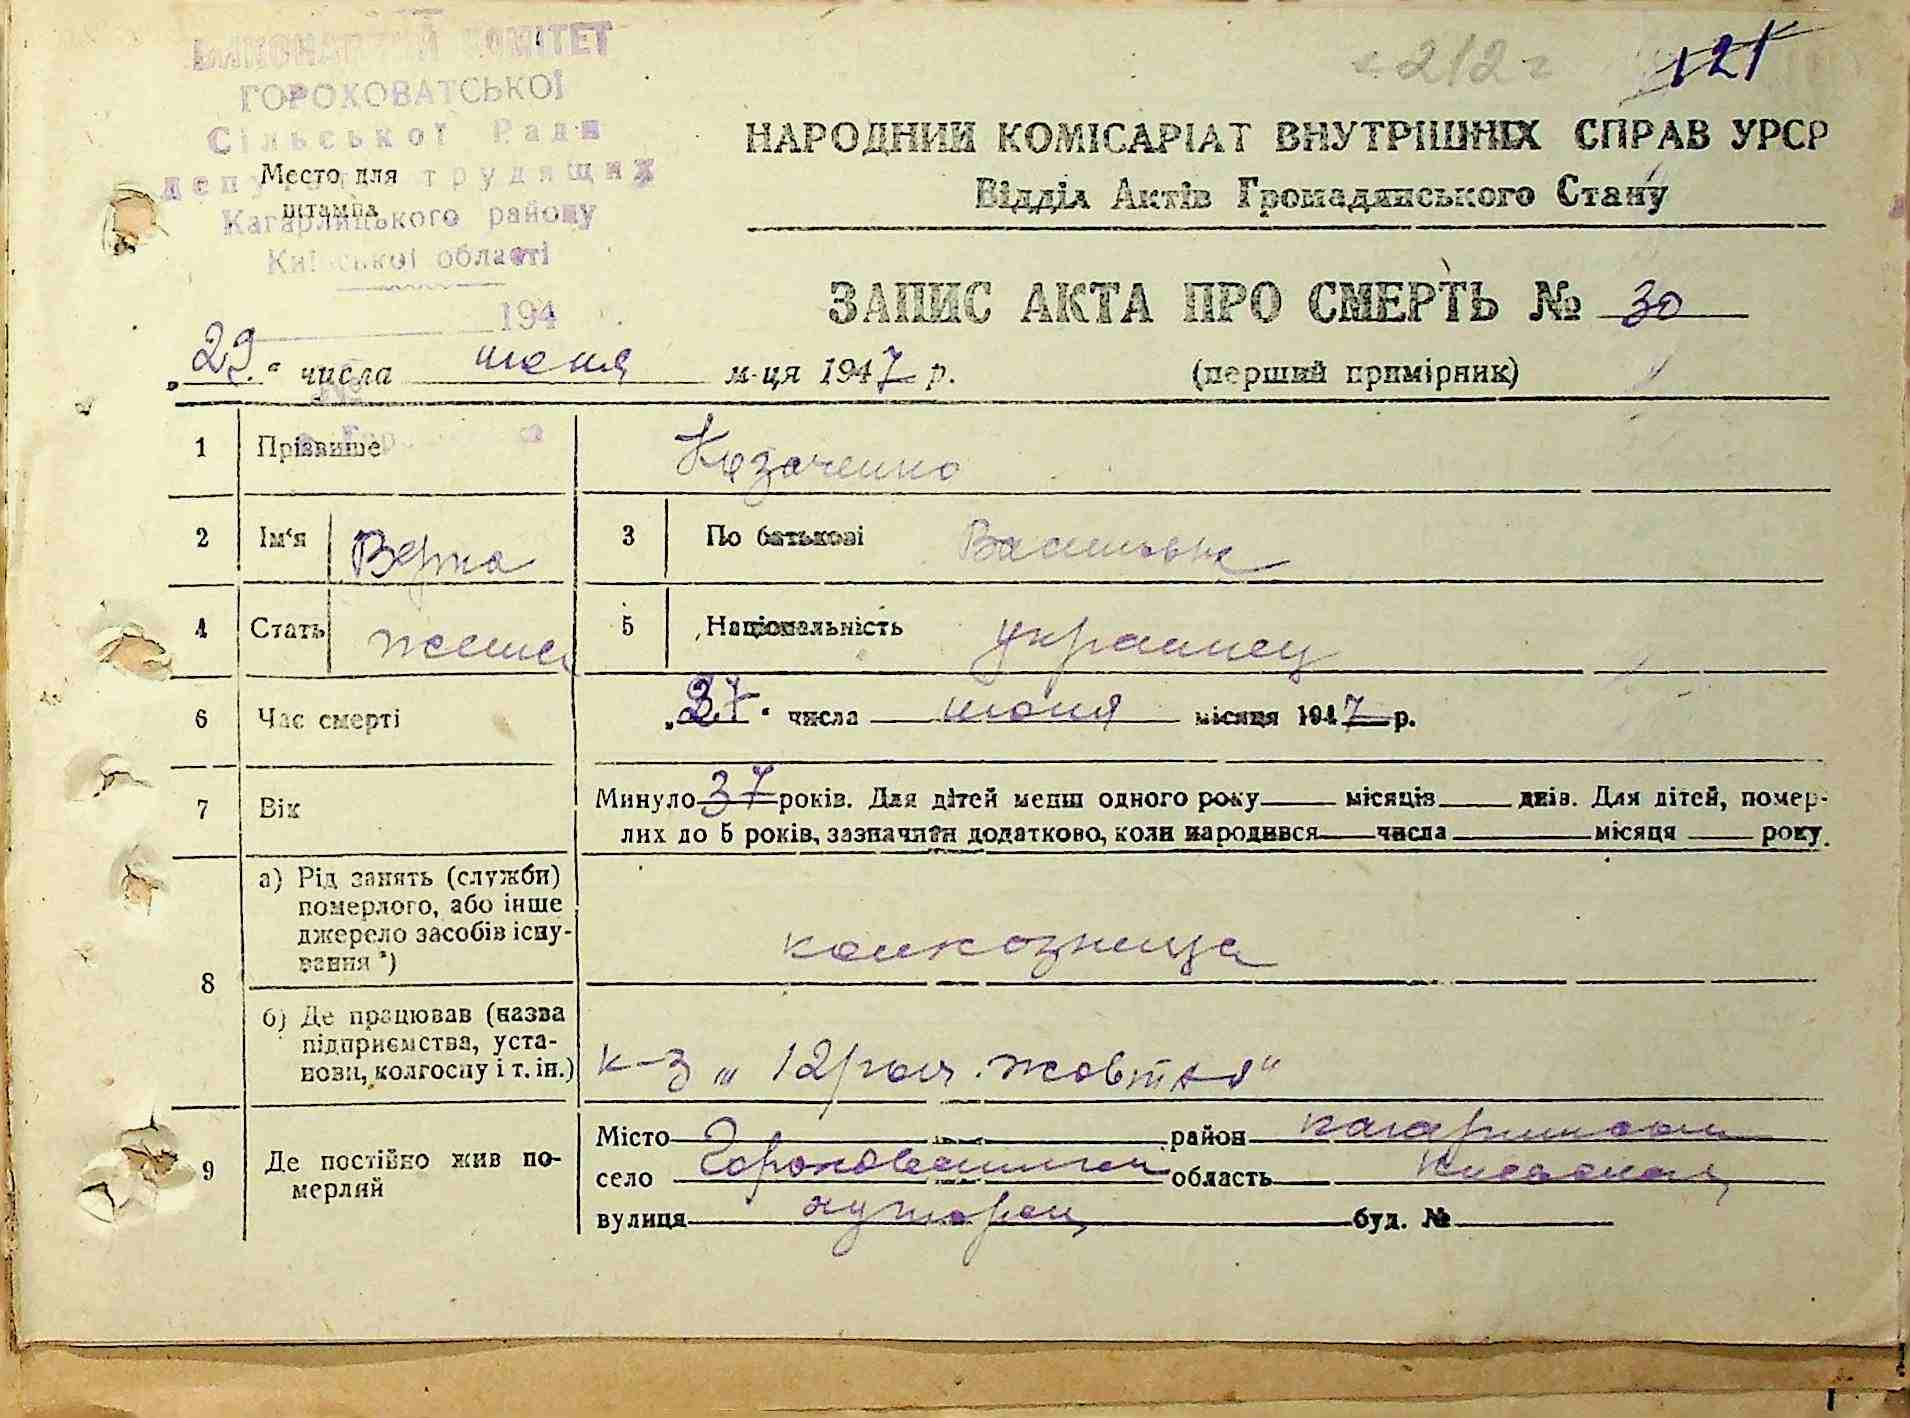 ВИКОНАВЧИЙ КОМІТЕТ
ГОРОХОВАТСЬКОЇ
Сільської Ради
депутатів трудящих
Кагарлицького району
Київської області
194
№
Место для
штампа
212
121
НАРОДНИЙ КОМІСАРІАТ ВНУТРІШНІХ СПРАВ УРСР
Відділ Актів Громадянського Стану
ЗАПИС АКТА ПРО СМЕРТЬ № 30
„29.“ числа июня м-ця 1947 р. (перший примірник)
1 Прізвише Козаченко
2 Ім'я Верка 3 По батькові Васильовн
4 Стать женск 5 Національність украинец
6 Час смерті „27“ числа июня місяця 1947 р.
7 Вік Минуло 37 років. Для дітей менш одного року місяців днів. Для дітей, помер-
лих до 5 років, зазначити додатково, коли народився числа місяця року.
8
а) Рід занять (службии)
померлого, або інше
джерело засобів існу-
вання *)
колхозница
б) Де працював (назва
підприємства, уста-
нови, колгоспу і т. ін.)
к-з „12 роч. жовтня“
9 Де постійно жив по-
мерлий
Місто район Кагарлыкский
село Гороховатка область Киевская
вулиця хуторец буд. №